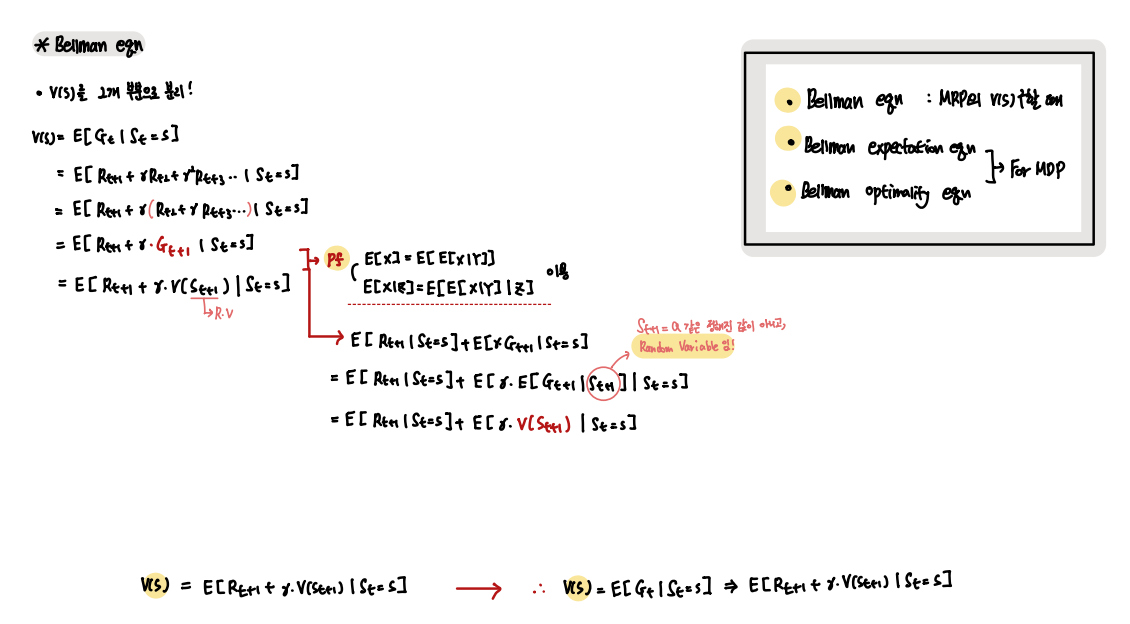 * Bellman eqn
• V(s)을 2개 부분으로 분리!
V(s) = E[Gt | St=s]
= E[Rt+1 + γRt+2 + γ²Rt+3 ··· | St=s]
= E[Rt+1 + γ(Rt+2 + γRt+3 ···) | St=s]
= E[Rt+1 + γ·Gt+1 | St=s]
= E[Rt+1 + γ·V(St+1) | St=s]
R.V
pf
E[X] = E[E[X|Y]]
E[X|Z] = E[E[X|Y] | Z] 이용
E[Rt+1 | St=s] + E[γGt+1 | St=s]
St+1 = a 같은 정해진 값이 아니고,
Random Variable 임!
= E[Rt+1 | St=s] + E[γ·E[Gt+1 | St+1] | St=s]
= E[Rt+1 | St=s] + E[γ·V(St+1) | St=s]
• Bellman eqn : MRP의 V(s) 구할 때
• Bellman expectation eqn
→ For MDP
• Bellman optimality eqn
V(s) = E[Rt+1 + γ·V(St+1) | St=s] → ∴ V(s) = E[Gt | St=s] ⇒ E[Rt+1 + γ·V(St+1) | St=s]